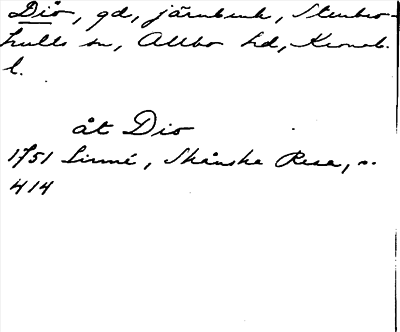 Diö, gd, järnbruk, Stenbro-
hults sn, Allbo hd, Kronob.
l.
åt Dio
1751 Linné, Skånska Resa, s.
414